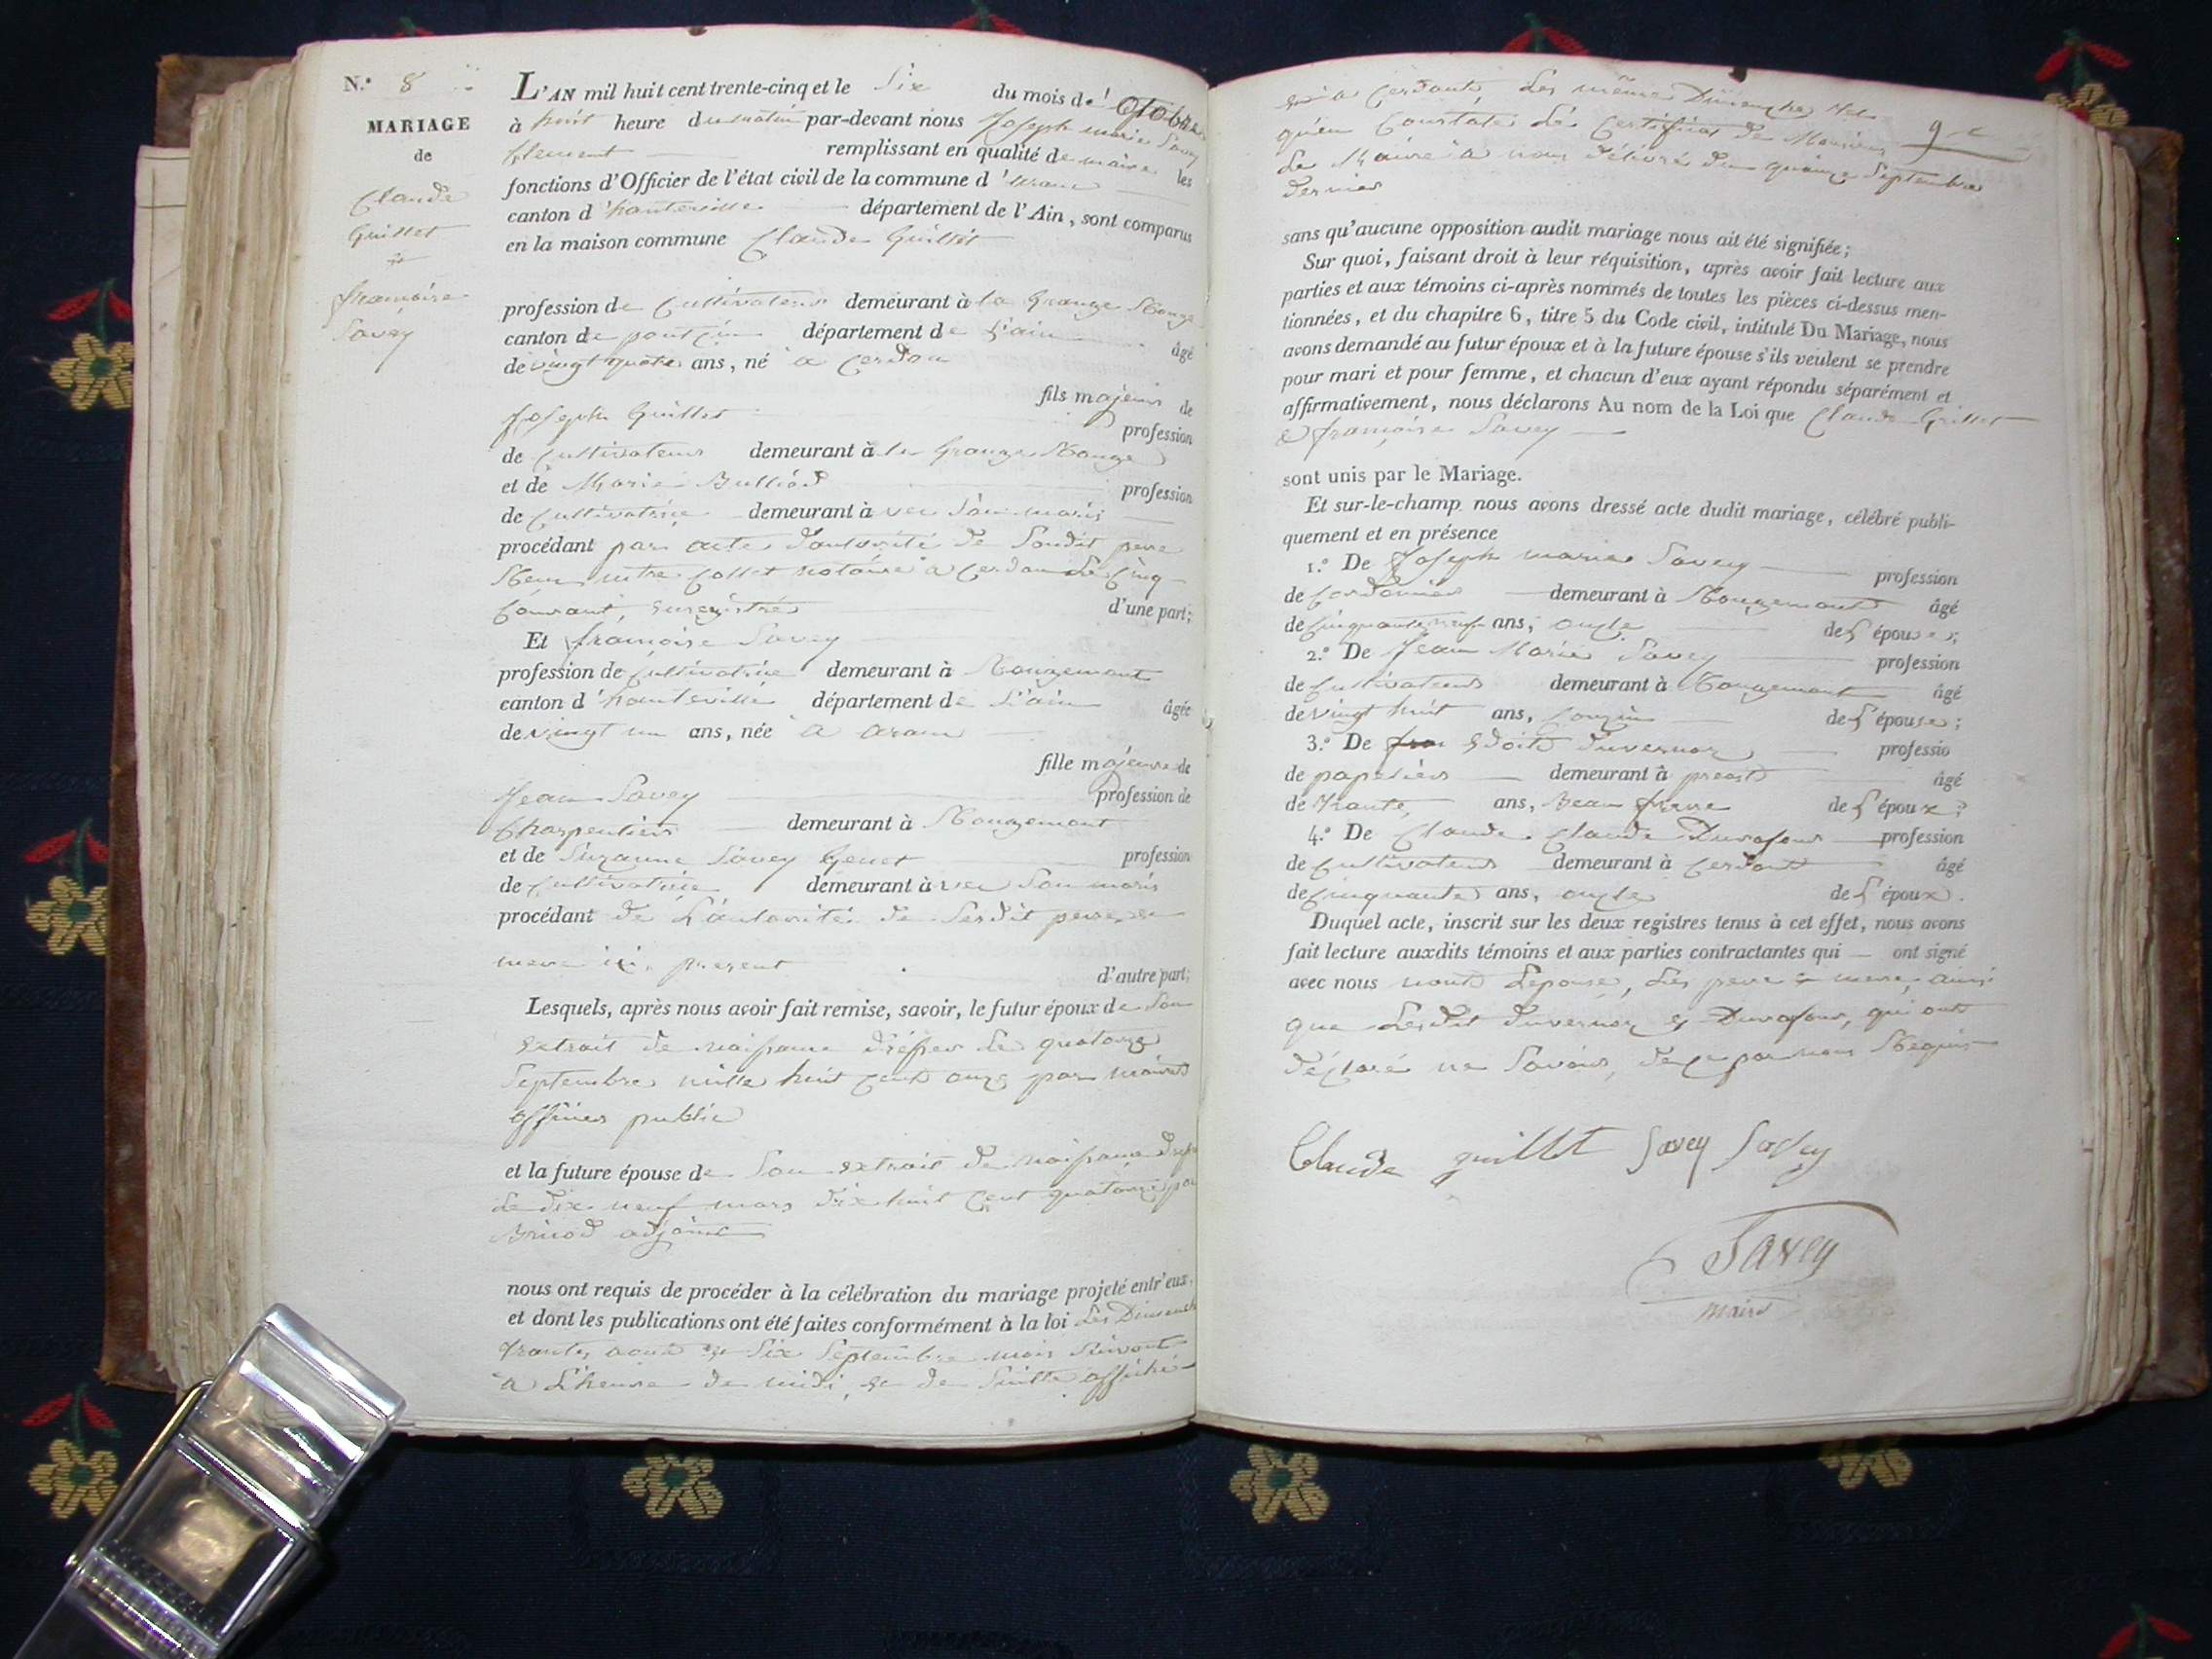 N.° 8
MARIAGE
de
Claude
Guillet
et
françoise
Savey
L'AN mil huit cent trente-cinq et le Six du mois d'Octobre
à huit heure du matin par-devant nous Joseph marie Savey
Clement remplissant en qualité de maire les
fonctions d'Officier de l'état civil de la commune d'aranc
canton d'hauteville département de l'Ain, sont comparus
en la maison commune Claude Guillet
profession de Cultivateur demeurant à la Grange Rouge
canton de pontcin département de L'ain âgé
de vingt quatre ans, né a Cerdon
fils majeur de
Joseph Guillet profession
de Cultivateur demeurant à la Grange Rouge
et de Marie Bulliod profession
de Cultivatrice demeurant à vec Son maris
procédant par acte d'autorité de Soudit pere
Reçu Collet notaire a Cerdon Le Cinq
Courant, enregistré d'une part;
Et françoise Savey
profession de Cultivatrice demeurant à Rougemont
canton d'hauteville département de L'ain âgée
de vingt un ans, née a aranc
fille majeure de
Jean Savey profession de
Charpentier demeurant à Rougemont
et de Suzanne Savey Genet profession
de Cultivatrice demeurant à vec Son maris
procédant de L'autorité de Sesdit pere et
mere ici present d'autre part;
Lesquels, après nous avoir fait remise, savoir, le futur époux de Son
extrait de naissance dressé Le quatorze
Septembre mille huit cent onze par
officier public
et la future épouse de Son extrait de naissance dressé
Le dix neuf mars dix huit cent quatorze par
Briod adjoint
nous ont requis de procéder à la célébration du mariage projeté entr'eux,
et dont les publications ont été faites conformément à la loi Les Dimanche
trante aout et Six Septembre mois Suivant
a L'heure de midi, et de Suitte affiché
a Cerdont, Les même Dimanche tel
qu'en Constate Le Certificat de Monsieur
Le Maire a nous délivré du quinze Septembre
dernier
9
sans qu'aucune opposition audit mariage nous ait été signifiée;
Sur quoi, faisant droit à leur réquisition, après avoir fait lecture aux
parties et aux témoins ci-après nommés de toutes les pièces ci-dessus men-
tionnées, et du chapitre 6, titre 5 du Code civil, intitulé Du Mariage, nous
avons demandé au futur époux et à la future épouse s'ils veulent se prendre
pour mari et pour femme, et chacun d'eux ayant répondu séparément et
affirmativement, nous déclarons Au nom de la Loi que Claude Guillet
& françoise Savey
sont unis par le Mariage.
Et sur-le-champ nous avons dressé acte dudit mariage, célébré publi-
quement et en présence
1.° De Joseph marie Savey profession
de Cordonnier demeurant à Rougemont âgé
de Cinquante neuf ans, oncle de L'épouse;
2.° De Jean Marie Savey profession
de Cultivateur demeurant à Rougemont âgé
de vingt huit ans, Couzin de L'épouse;
3.° De Duvernoz professio
de papetier demeurant à âgé
de trante ans, Beau frere de L'époux;
4.° De Claude Claude Duvafour profession
de Cultivateur demeurant à Cerdont âgé
de Cinquante ans, oncle de L'époux.
Duquel acte, inscrit sur les deux registres tenus à cet effet, nous avons
fait lecture auxdits témoins et aux parties contractantes qui ont signé
avec nous nont L'epouse, Les pere & mere, ainsi
que Lesdit Duvernoz et Duvafour, qui ont
déclaré ne Savoir, de ce par nous Requis
Claude guillet Savey Savey
Savey
maire